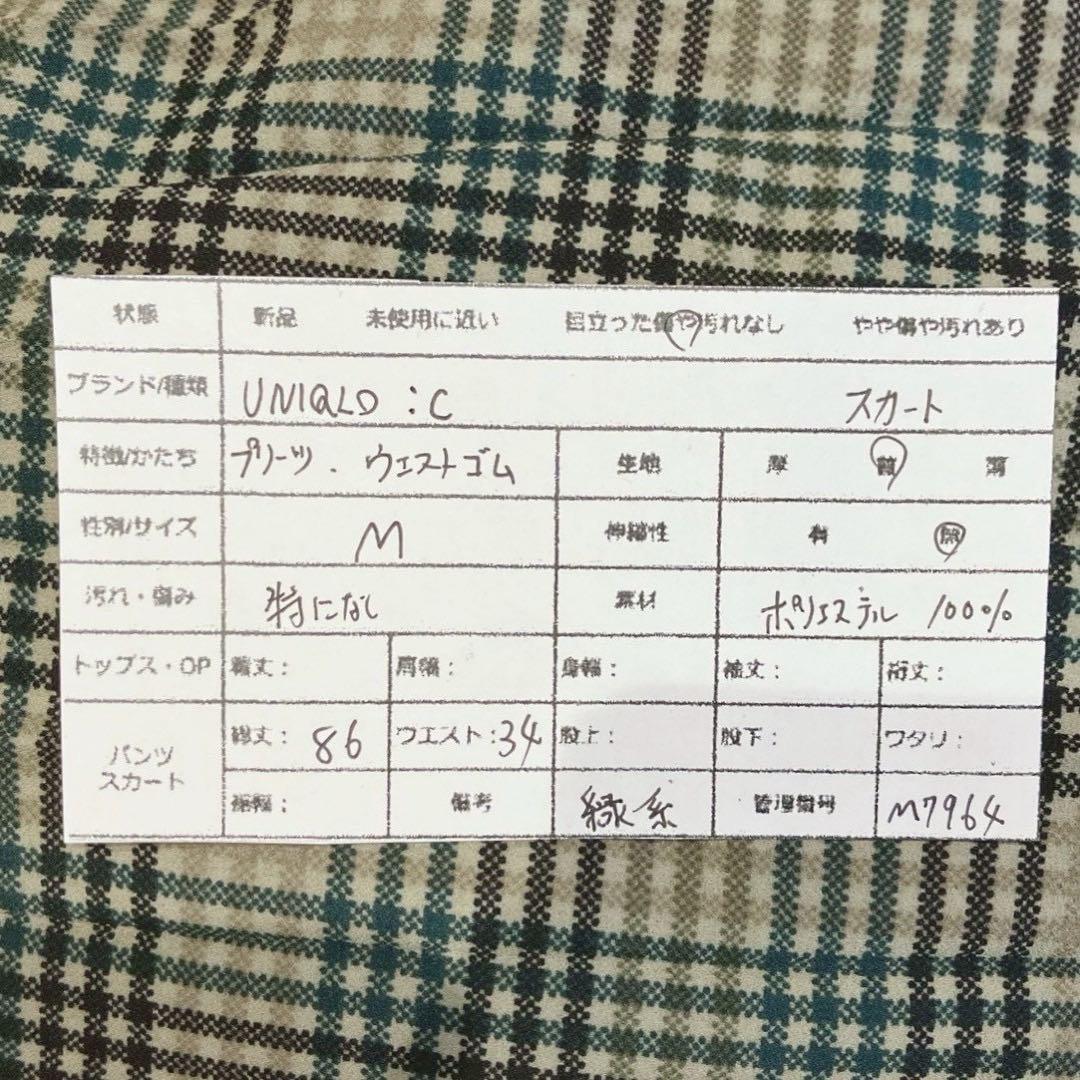 状態 新品 未使用に近い 目立った傷や汚れなし やや傷や汚れあり
ブランド/種類 UNIQLO : C スカート
特徴/かたち プリーツ . ウエストゴム 生地 厚 普 薄
性別/サイズ M 伸縮性 有 無
汚れ・傷み 特になし 素材 ポリエステル 100%
トップス・OP 着丈: 肩幅: 身幅: 袖丈: 裄丈:
パンツ スカート 総丈: 86 ウエスト: 34 股上: 股下: ワタリ:
裾幅: 備考 緑系 管理番号 M7964